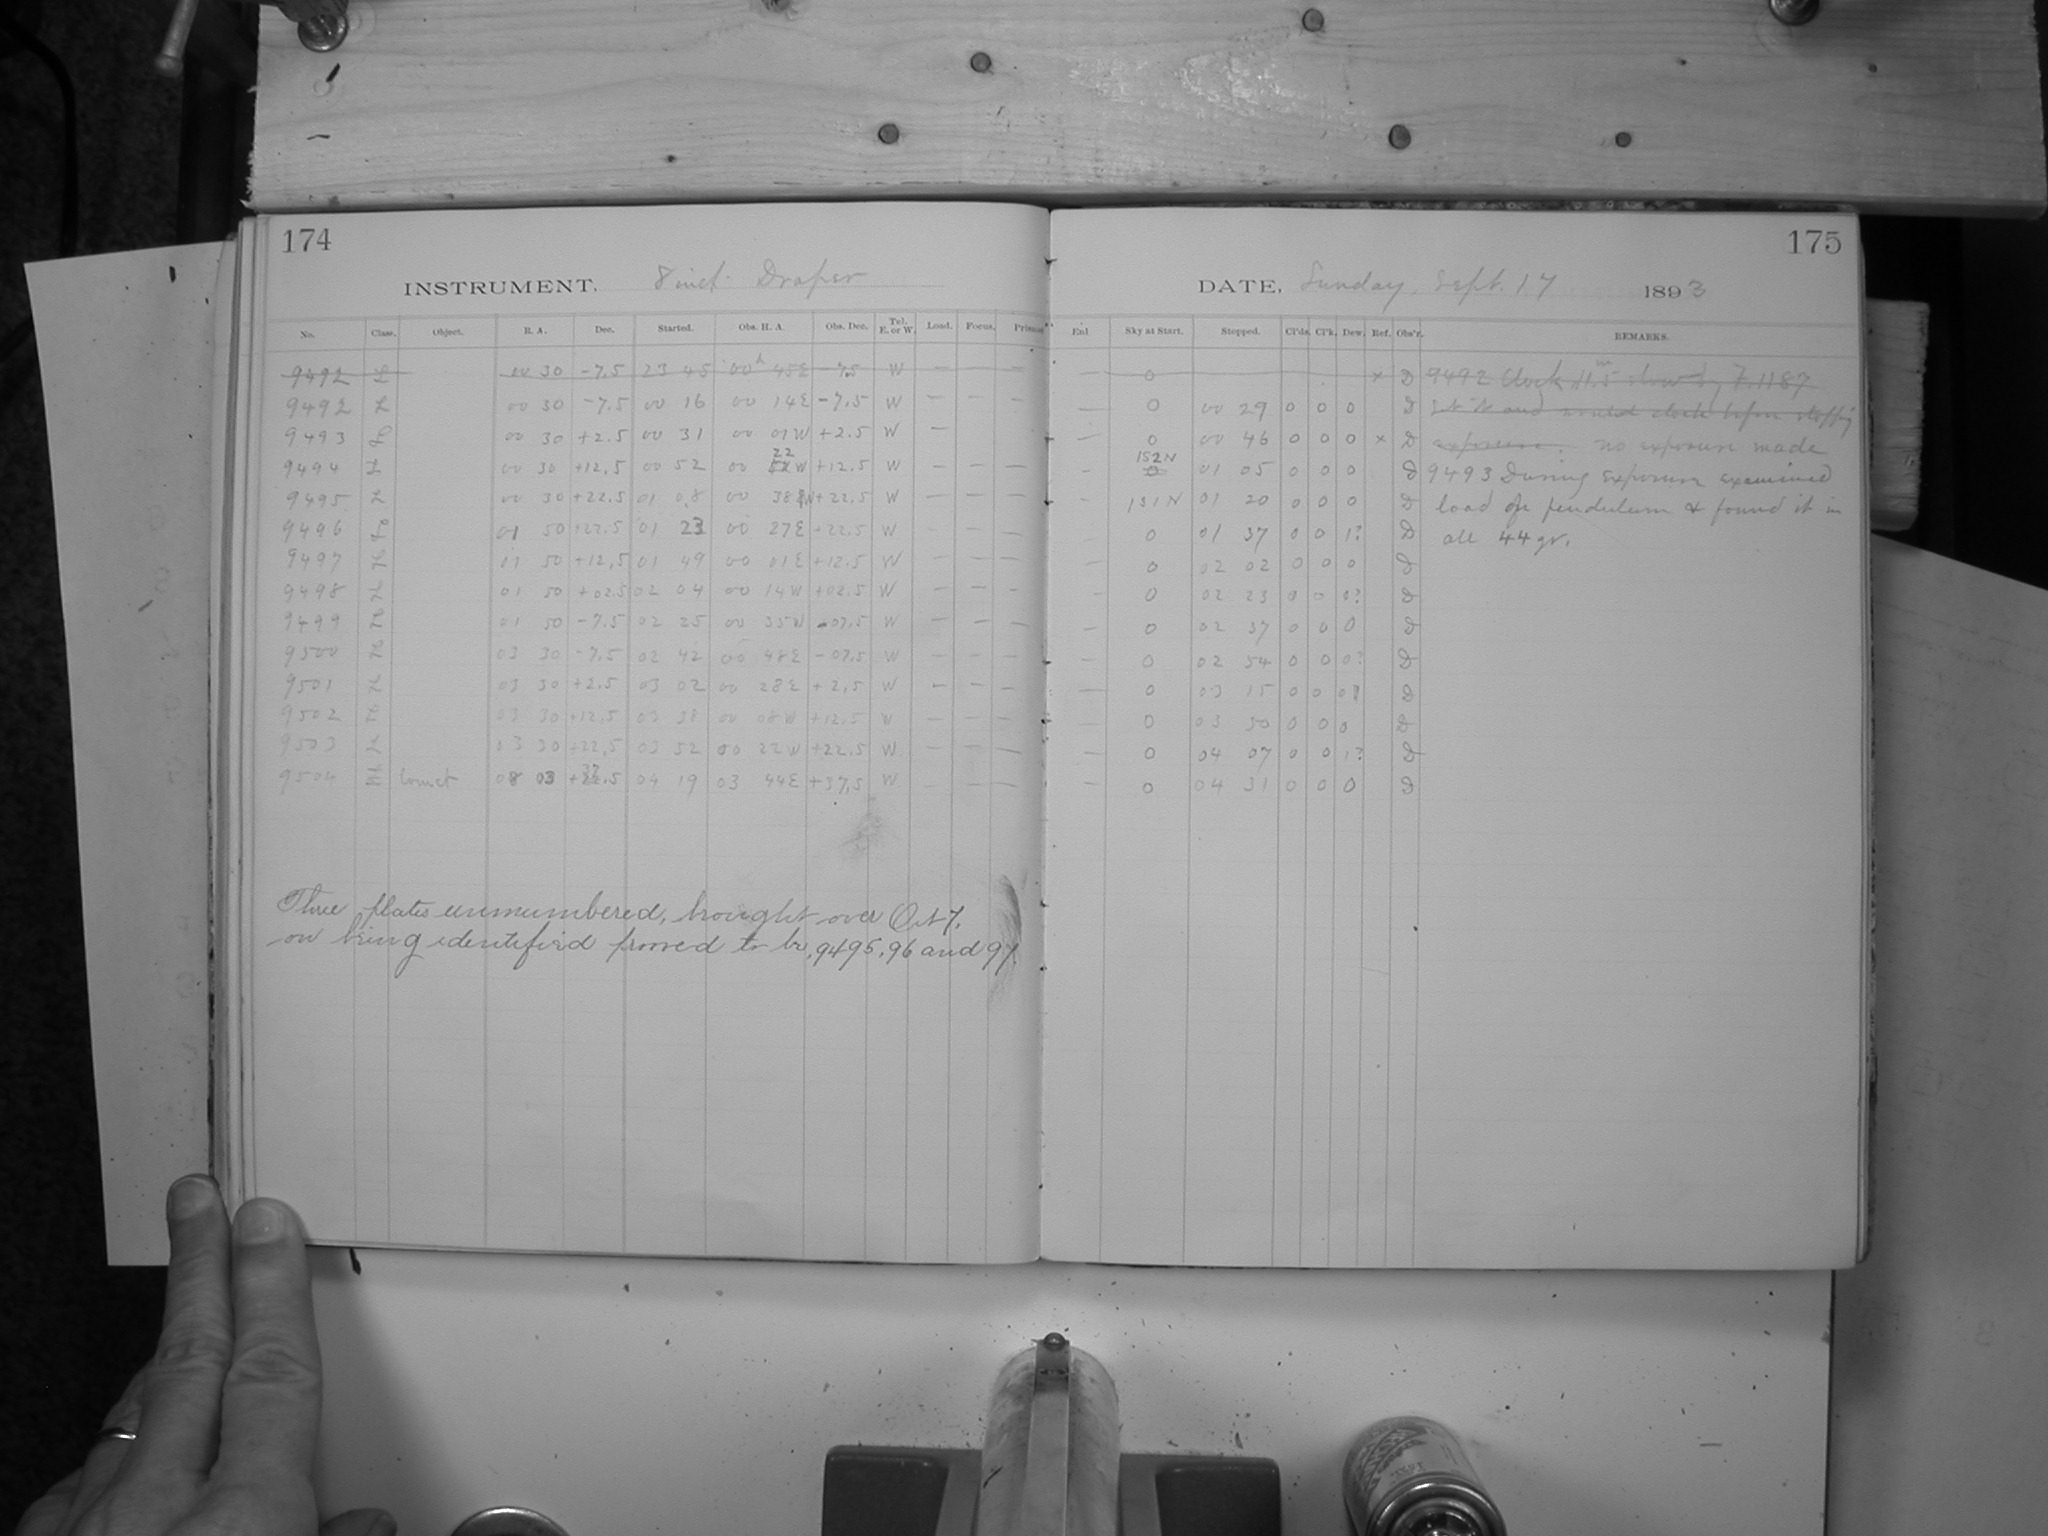 174
INSTRUMENT, 8 inch Draper
No. Class. Object. R. A. Dec. Started. Obs. H. A. Obs. Dec. Tel. E. or W. Load. Focus. Prisms
9492 L 00 30 -7.5 23 45 00h 45E -7.5 W — — —
9492 L 00 30 -7.5 00 16 00 14E -7.5 W — — —
9493 00 30 +2.5 00 31 00 01W +2.5 W —
9494 L 00 30 +12.5 00 52 00 22 W +12.5 W — — —
9495 L 00 30 +22.5 01 08 00 38 W +22.5 W — — —
9496 01 50 +22.5 01 23 00 27E +22.5 W — — —
9497 01 50 +12.5 01 49 00 01E +12.5 W — — —
9498 01 50 +02.5 02 04 00 14W +02.5 W — — —
9499 01 50 -7.5 02 25 00 35W -07.5 W — — —
9500 03 30 -7.5 02 42 00 48E -07.5 W — — —
9501 03 30 +2.5 03 02 00 28E +2.5 W — — —
9502 03 30 +12.5 03 38 00 08W +12.5 W — — —
9503 03 30 +22.5 03 52 00 22W +22.5 W — — —
9504 Comet 08 03 +37.5 04 19 03 44E +37.5 W — — —
Three plates unnumbered, brought over Oct 7,
on being identified proved to be 9495, 96 and 97.
175
DATE, Sunday, Sept. 17 1893
Enl Sky at Start. Stopped. Cl'ds. Cl'k. Dew. Ref. Obs'r. REMARKS.
— 0 x D 9492 Clock 11.5m slow by F. 1187
— 0 00 29 0 0 0 D Set it and wound clock before stopping
— 0 00 46 0 0 0 x D exposure. no exposure made
152N 0 01 05 0 0 0 D 9493 During exposure examined
151N 01 20 0 0 0 D load of pendulum & found it in
0 01 37 0 0 1? D all 44 gr.
— 0 02 02 0 0 0 D
— 0 02 23 0 0 0? D
— 0 02 37 0 0 0 D
— 0 02 54 0 0 0? D
— 0 03 15 0 0 0? D
— 0 03 50 0 0 0 D
— 0 04 07 0 0 1? D
— 0 04 31 0 0 0 D